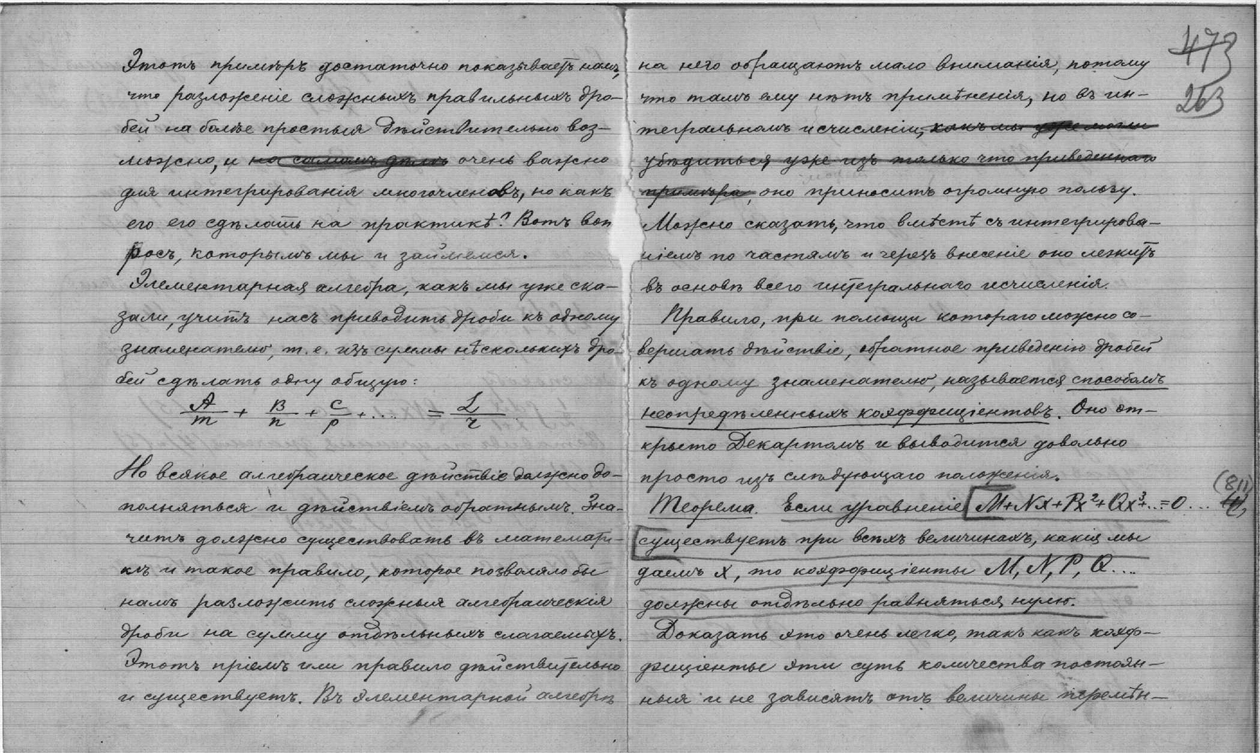 Этотъ примѣръ достаточно показываетъ намъ,
что разложеніе сложныхъ правильныхъ дро-
бей на болѣе простыя дѣйствительно воз-
можно, и на самомъ дѣлѣ очень важно
для интегрированія многочленовъ, но какъ
его его сдѣлать на практикѣ? Вотъ воп
росъ, которымъ мы и займемся.
Элементарная алгебра, какъ мы уже ска-
зали, учитъ насъ приводить дроби къ одному
знаменателю, т. е. изъ суммы нѣсколькихъ дро-
бей сдѣлать одну общую:
A/m + B/n + C/p + ... = L/r
Но всякое алгебраическое дѣйствіе должно до-
полняться и дѣйствіемъ обратнымъ. Зна-
читъ должно существовать въ математи-
кѣ и такое правило, которое позволяло бы
намъ разложить сложныя алгебраическія
дроби на сумму отдѣльныхъ слагаемыхъ.
Этотъ пріемъ или правило дѣйствительно
и существуетъ. Въ элементарной алгебрѣ
473
263
на него обращаютъ мало вниманія, потому
что тамъ ему нѣтъ примѣненія, но въ ин-
тегральномъ исчисленіи, какъ мы уже могли
убѣдиться уже изъ только что приведеннаго
примѣра, оно приноситъ огромную пользу.
Можно сказать, что вмѣстѣ съ интегрирова-
ніемъ по частямъ и черезъ внесеніе оно лежитъ
въ основѣ всего интегральнаго исчисленія.
Правило, при помощи котораго можно со-
вершать дѣйствіе, обратное приведенію дробей
къ одному знаменателю, называется способомъ
неопредѣленныхъ коэффиціентовъ. Оно от-
крыто Декартомъ и выводится довольно
просто изъ слѣдующаго положенія.
Теорема. Если уравненіе M+Nx+Px²+Qx³+...=0... (811)
существуетъ при всѣхъ величинахъ, какія мы
даемъ x, то коэффиціенты M, N, P, Q...
должны отдѣльно равняться нулю.
Доказать это очень легко, такъ какъ коэф-
фиціенты эти суть количества постоян-
ныя и не зависятъ отъ величины перемѣн-